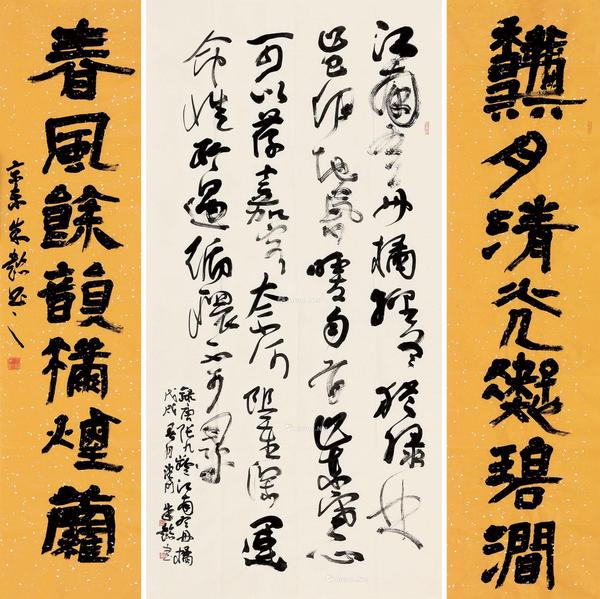 月清光碧澗
江南有丹橘經冬猶綠林
豈伊地氣暖自有歲寒心
可以薦嘉客奈何阻重深運
命惟所遇循環不可尋
錄唐張九齡江南有丹橘
戊戌
春風餘韻橫煙